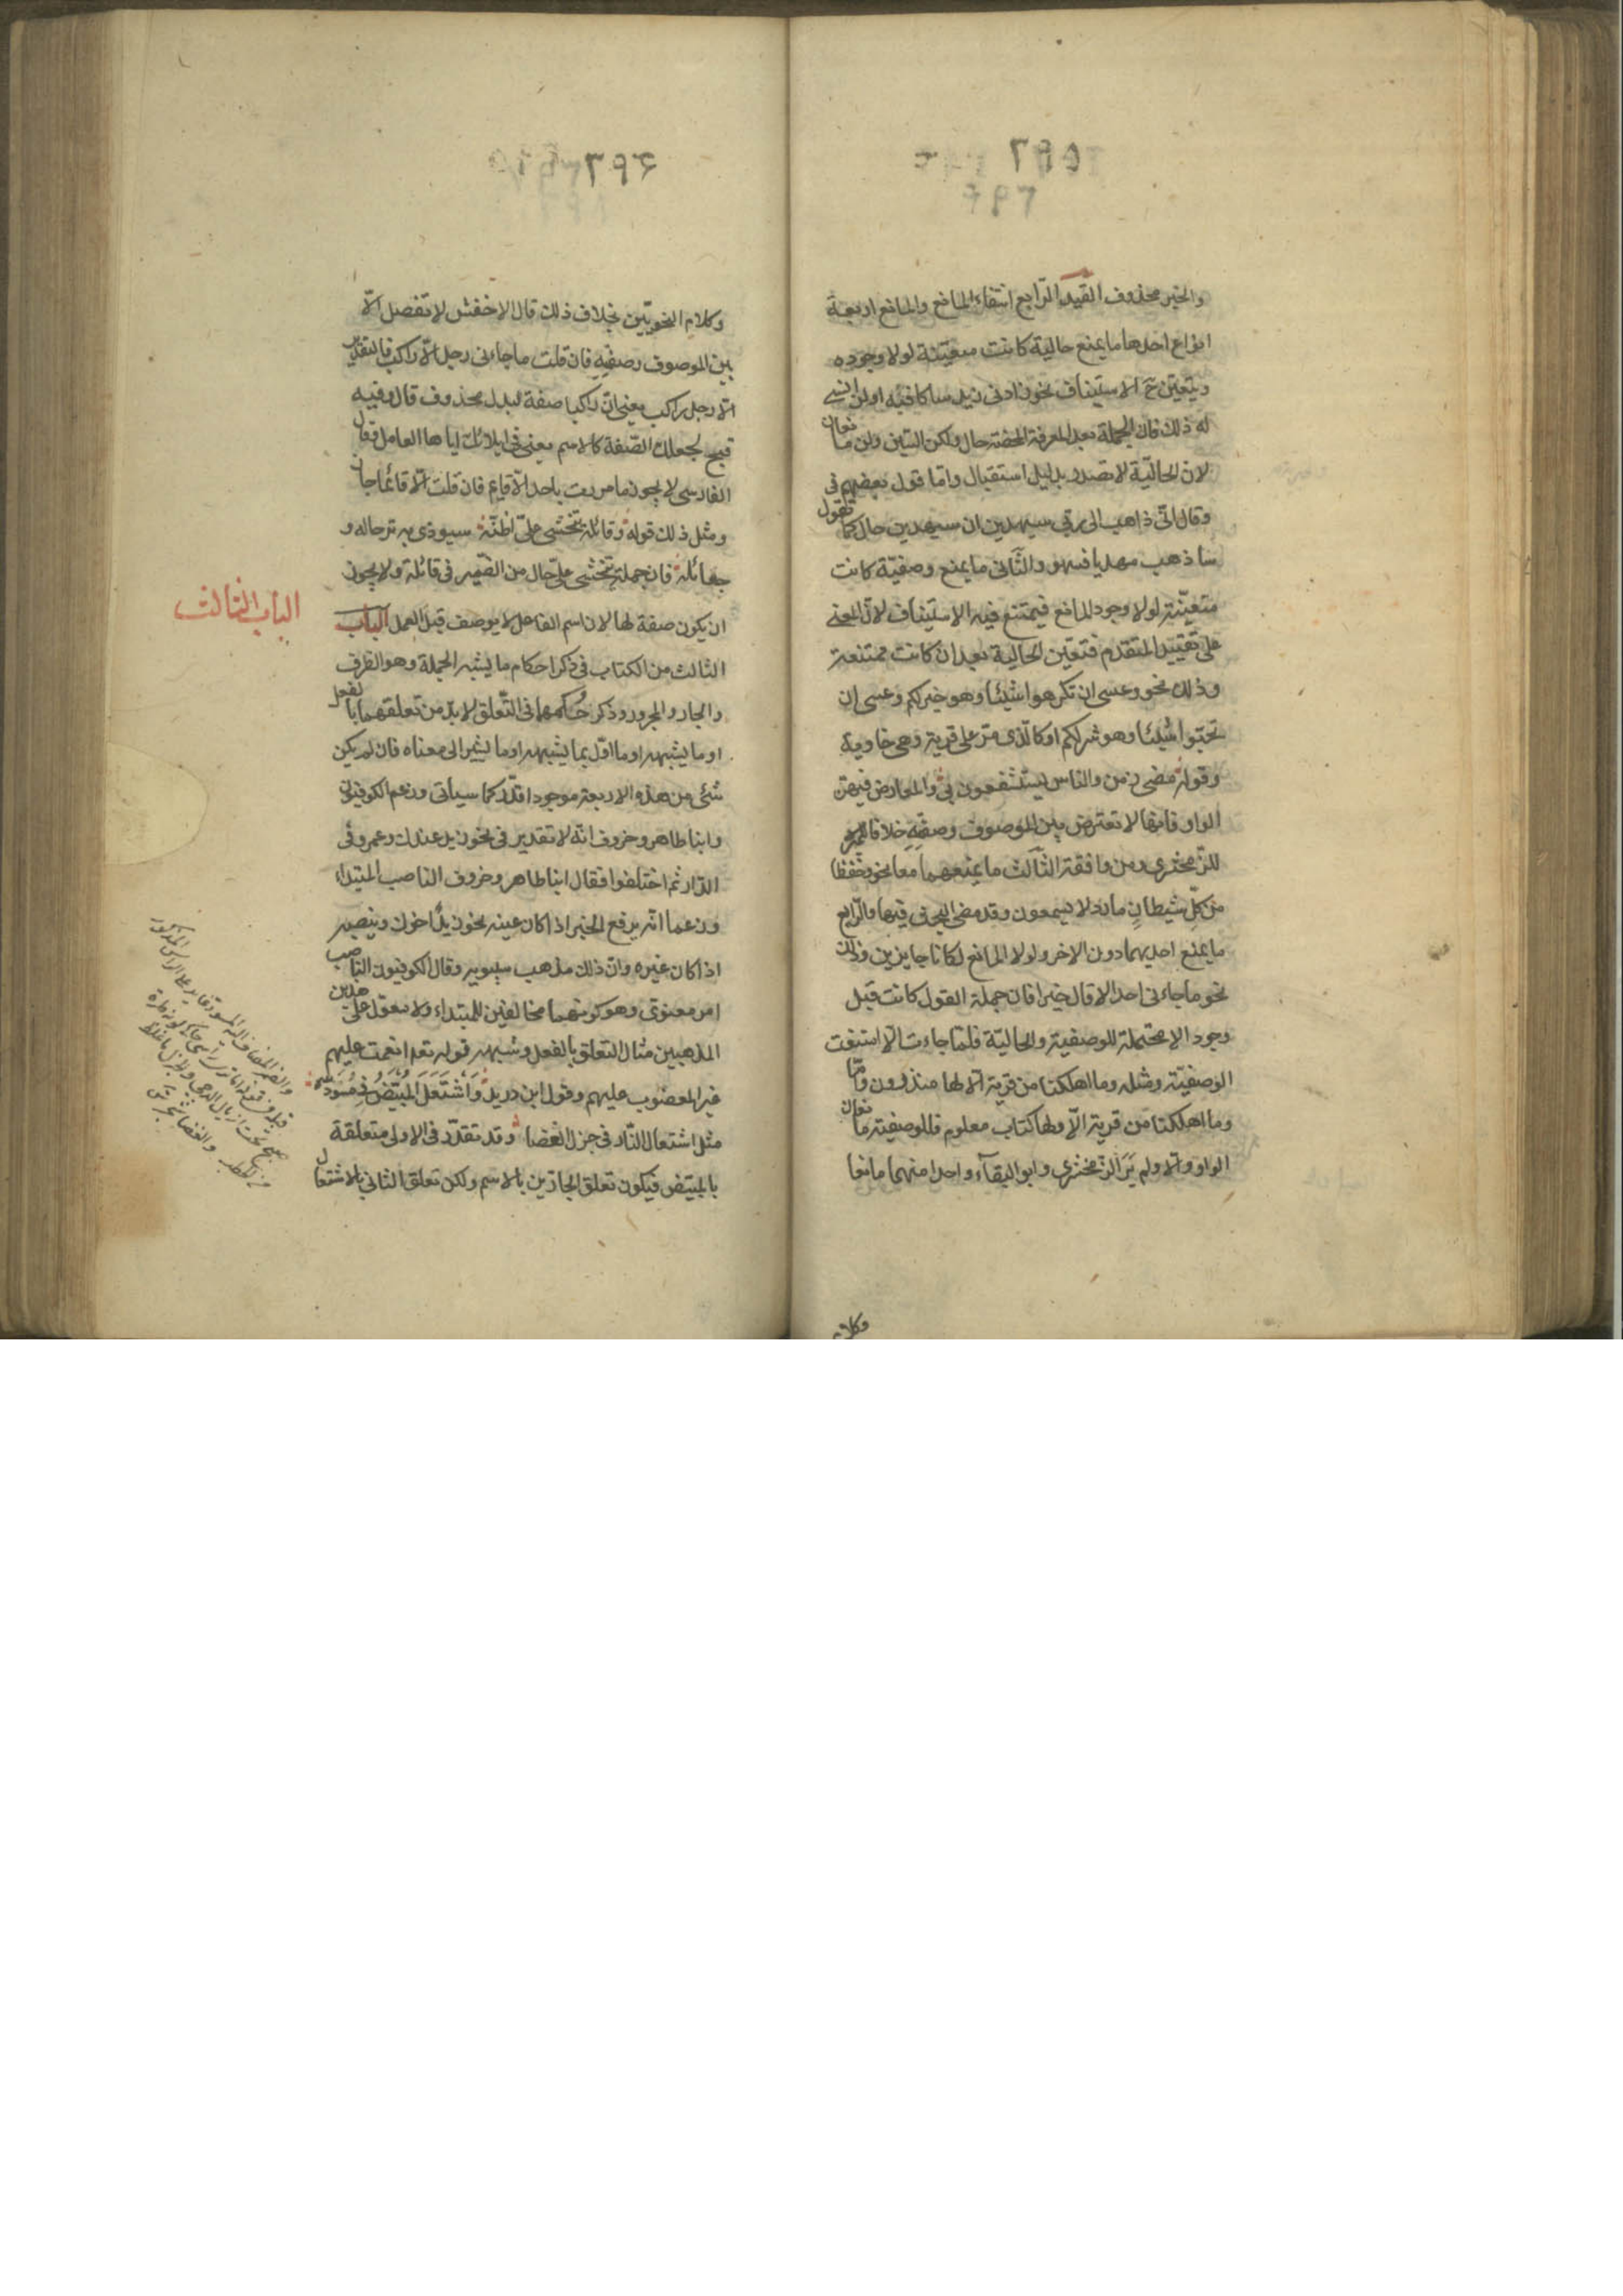 والخبر محذوف القيد الرابع انتفاء المانع والمانع اربعة
انواع احدها ما يمنع حالية كانت متعيّنة لولا وجوده
ويتعيّن ح الاستيناف نحو زارنى زيد ساكافيه او لن انسى
له ذلك فان الجملة بعد المعرفة المحضة حال ولكن السّين ولن مانعان
لان الحاليّة لا تصدر بدليل استقبال واما قول بعضهم فى
وقال انّى ذاهب الى ربّى سيهدين ان سيهدين حال كما تقول
ساذهب مهديا فسهو والثّانى ما يمنع وصفيّة كانت
متعيّنة لولا وجود المانع فيمتنع فيه الاستيناف لانّ المعنى
على تقييد المتقدم فتتعين الحالية بعد ان كانت ممتنعة
وذلك نحو وعسى ان تكرهوا شيئا وهو خير لكم وعسى ان
تحبّوا شيئا وهو شر لكم او كالّذى مرّ على قرية وهى خاوية
وقوله مضى زمن والناس يستشفعون بى والمعارض فيهنّ
الواو فانها لا تعترض بين الموصوف وصفته خلافا
للزّمخشرى ومن وافقه الثّالث ما يمنعهما معا نحو وحفظا
من كلّ شيطان مارد لا يسمعون وقد مضى البحث فيها والرّابع
ما يمنع احديهما دون الاخر ولولا المانع لكانا جايزين وذلك
نحو ما جاءنى احد الا قال خيرا فان جملة القول كانت قبل
وجود الا محتملة للوصفية والحاليّة فلمّا جاءت الّا امتنعت
الوصفيّة ومثله وما اهلكنا من قرية الّا لها منذرون وامّا
وما اهلكنا من قرية الّا ولها كتاب معلوم فللوصفيّة مانعان
الواو والّا ولم يَرَ الزّمخشرى وابو البقاء واحدا منهما مانعا
وكلام
وكلام النحويّين بخلاف ذلك قال الاخفش لا تفصل الّا
بين الموصوف وصفته فان قلت ما جاءنى رجل الّا راكب فالتقدير
الّا رجل راكب يعنى انّ راكبا صفة لبدل محذوف قال وفيه
قبح لجعلك الصّفة كالاسم يعنى فى ايلائك اياها العامل فقال
الفارسى لا يجوز ما مررت باحد الّا قايم فان قلت الّا قائما جاز
ومثل ذلك قوله وقائلة تخشى علىّ اظنّه سيودى به ترحاله و
جعائله فان جملة تخشى علىّ حال من الضّمير فى قائلة ولا يجوز
ان يكون صفة لها لان اسم الفاعل لا يوصف قبل العمل الباب
الباب الثالث
الثالث من الكتاب فى ذكر احكام ما يشبه الجملة وهو الظرف
والجار والمجرور وذكر حُكمهما فى التّعلق لا بدّ من تعلقهما بالفعل
او ما يشبهه او ما اوّل بما يشبهه او ما يشير الى معناه فان لم يكن
شئ من هذه الاربعة موجودا قدّر كما سيأتى وزعم الكوفيّون
وابنا طاهر وخروف انّه لا تقدير فى نحو زيد عندك وعمرو فى
الدّار ثم اختلفوا فقال ابنا طاهر وخروف الناصب المبتداء
وزعما انّه يرفع الخبر اذا كان عينه نحو زيد اخوك وينصبه
اذا كان غيره وانّ ذلك مذهب سيبويه وقال الكوفيون الناصب
امر معنوىّ وهو كونهما مخالفين للمبتداء ولا معوّل على هذين
المذهبين مثال التعلق بالفعل وشبهه قوله تعم انعمت عليهم
غير المغضوب عليهم وقول ابن دريد وَاشْتَعَلَ المبيَضُّ فى مُسْوَدّه
مثل اشتعال النّار فى جزل الغضا وقد تقدّر فى الاولى متعلقة
بالمبيّض فيكون تعلق الجارّين بالاسم ولكن تعلق الثانى بالاشتعال